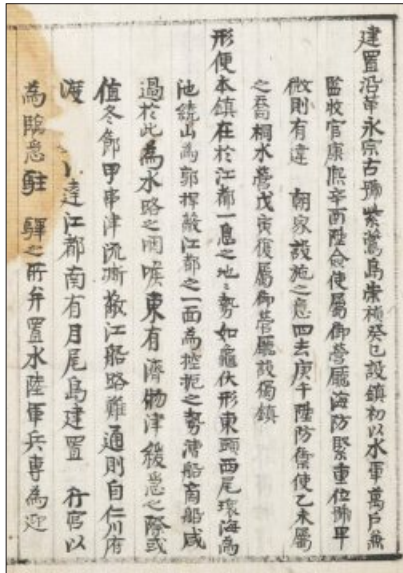 建置沿革永宗古號紫鷰島崇禎癸巳設鎭初以水軍萬戶兼
監收官康熙辛酉陞僉使屬御營廳海防緊重位卑
微則有違 朝家設施之意四去庚午陞防禦使乙未屬
之喬桐水營戊寅復屬御營廳設獨鎭
形便本鎭在於江都一息之地地勢如龜伏形東頭西尾環海爲
池繞山爲郭捍蔽江都之一面爲控扼之勢漕船商船咸
過於此爲水路之咽喉東有濟物津緩急之際或
値冬節甲串津流澌蔽江船路難通則自仁川府
渡 達江都南有月尾島建置 行宮以
爲臨急駐蹕之所幷置水陸軍兵專爲迎